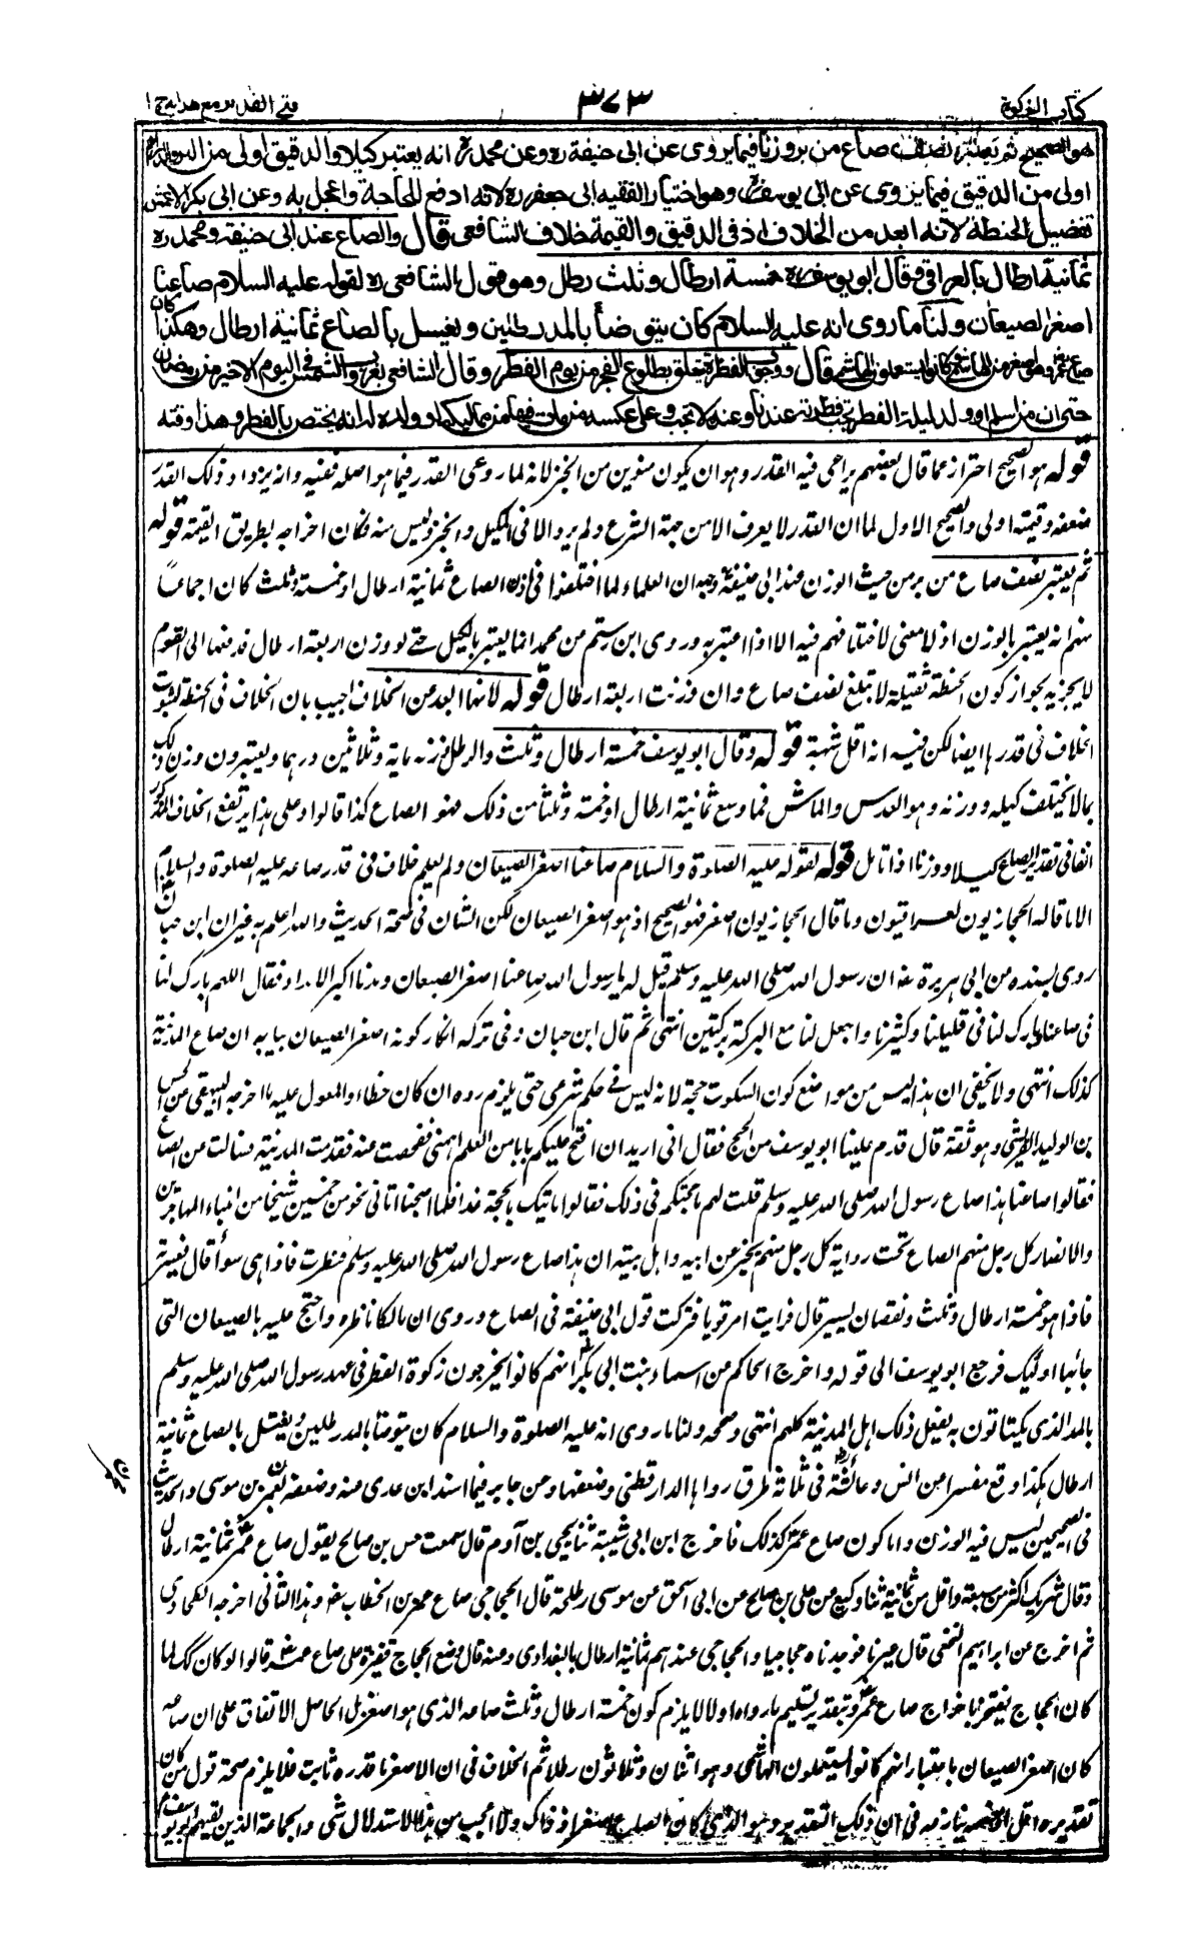 كتاب الزكوة
٣٧٣
فتح القدير مع هدايه ج ١
هو الصحيح ثم يعتبر نصف صاع من بر وزنا فيما يروى عن ابى حنيفة ره وعن محمد ره انه يعتبر كيلا والدقيق اولى من البر والدراهم
اولى من الدقيق فيما يروى عن ابى يوسف ره وهو اختيار الفقيه ابى جعفر ره لانه ادفع للحاجة واعجل به وعن ابى بكر الاعمش
تفضيل الحنطة لانه ابعد من الخلاف اذ فى الدقيق والقيمة خلاف الشافعى قال والصاع عند ابى حنيفة ومحمد ره
ثمانية ارطال بالعراقى وقال ابو يوسف ره خمسة ارطال وثلث رطل وهو قول الشافعى ره لقوله عليه السلام صاعنا
اصغر الصيعان ولنا ما روى انه عليه السلام كان يتوضأ بالمد رطلين ويغسل بالصاع ثمانية ارطال وهكذا كان
صاع عمر وهو اصغر من الهاشمى وكانوا يستعملون الهاشمى قال ووجوب الفطرة يتعلق بطلوع الفجر من يوم الفطر وقال الشافعى بغروب الشمس فى اليوم الاخير من رمضان
حتى ان من اسلم او ولد ليلة الفطر تجب فطرته عندنا وعنده لا تجب وعلى عكسه من مات فيها من مماليكه او ولده له انه يختص بالفطر وهذا وقته
قوله هو الصحيح احتراز عما قال بعضهم يراعى فيه القدر وهو ان يكون منوين من الخبز لانه لما روعى القدر فيما هو اصله ففيه وانه يزداد ذلك القدر
صنعة وقيمة اولى والصحيح الاول لما ان القدر لا يعرف الا من جهة الشرع ولم يرد الا فى المكيل والخبز ليس منه فكان اخراجه بطريق القيمة قوله
ثم يعتبر نصف صاع من بر من حيث الوزن عند ابى حنيفة وجه ان العلماء لما اختلفوا فى ان الصاع ثمانية ارطال او خمسة وثلث كان اجماعا
منهم انه يعتبر بالوزن اذ لا معنى لاختلافهم فيه الا اذا اعتبر به وروى ابن رستم عن محمد انما يعتبر بالكيل حتى لو وزن اربعة ارطال فدفعها الى القوم
لا يجزيه لجواز كون الحنطة ثقيلة لا تبلغ نصف صاع وان وزنت اربعة ارطال قوله لانها ابعد من الخلاف اجيب بان الخلاف فى الحنطة لثبوت
الخلاف فى قدرها ايضا لكن فيه انه اقل شبهة قوله وقال ابو يوسف خمسة ارطال وثلث والرطل زنة ماية وثلاثين درهما ويعتبرون وزن ذلك
بما لا يختلف كيله ووزنه وهو العدس والماش فما وسع ثمانية ارطال او خمسة وثلثا من ذلك فهو الصاع كذا قالوا وعلى هذا يرتفع الخلاف المذكور
انفا فى تقدير الصاع كيلا ووزنا اذا تامل قوله لقوله عليه الصلوة والسلام صاعنا اصغر الصيعان ولم يعلم خلاف فى قدر صاعه عليه الصلوة والسلام
الا ما قاله الحجازيون لعراقيون وما قال الحجازيون اصغر فهو الصحيح اذ هو اصغر الصيعان لكن الشان فى صحة الحديث والله اعلم به غير ان ابن حبان
روى بسنده عن ابى هريرة عنه ان رسول الله صلى الله عليه وسلم قيل له يا رسول الله صاعنا اصغر الصيعان ومدنا اكبر الامداد فقال اللهم بارك لنا
فى صاعنا وبارك لنا فى قليلنا وكثيرنا واجعل لنا مع البركة بركتين انتهى ثم قال ابن حبان وفى تركه انكار كونه اصغر الصيعان بيان ان صاع المدينة
كذلك انتهى ولا يخفى ان هذا ليس من مواضع كون السكوت حجة لانه ليس فى حكم شرعى حتى يلزم رده ان كان خطاء والمعول عليه ما اخرجه البيهقى عن الحسين
بن الوليد القرشى وهو ثقة قال قدم علينا ابو يوسف من الحج فقال انى اريد ان افتح عليكم بابا من العلم اهمنى ففحصت عنه فقدمت المدينة فسالت عن الصاع
فقالوا صاعنا هذا صاع رسول الله صلى الله عليه وسلم قلت لهم ما حجتكم فى ذلك فقالوا ناتيك بالحجة غدا فلما اصبحنا اتانى نحو من خمسين شيخا من ابناء المهاجرين
والانصار كل رجل منهم الصاع تحت رداية كل رجل منهم يخبر عن ابيه واهل بيته ان هذا صاع رسول الله صلى الله عليه وسلم فنظرت فاذا هى سواء قال فعيرته
فاذا هو خمسة ارطال وثلث ونقصان يسير قال فرايت امرا قويا فتركت قول ابى حنيفة فى الصاع وروى ان مالكا ناظره واحتج عليه بالصيعان التى
جائبها اولئك فرجع ابو يوسف الى قوله واخرج الحاكم عن اسماء بنت ابى بكر انهم كانوا يخرجون زكوة الفطر فى عهد رسول الله صلى الله عليه وسلم
بالمد الذى يقتاتون به يفعل ذلك اهل المدينة كلهم انتهى وصححه ولنا ما روى انه عليه الصلوة والسلام كان يتوضا بالمد رطلين ويغتسل بالصاع ثمانية
ارطال هكذا وقع مفسرا عن انس وعائشة فى ثلاثة طرق رواها الدارقطنى وضعفها وعن جابر فيما اسند ابن عدى عنه وضعفه بعمر بن موسى والحديث
فى الصحيحين ليس فيه الوزن واما كون صاع عمر كذلك فاخرج ابن ابى شيبة ثنا يحيى بن آدم قال سمعت حسن بن صالح يقول صاع عمر ثمانية ارطال
وقال شريك اكثر من سبعة واقل من ثمانية ثنا وكيع عن على بن صالح عن ابى اسحق عن موسى بن طلحة قال الحجاجى صاع عمر بن الخطاب رضه وهذا الثانى اخرجه الطحاوى
ثم اخرج عن ابراهيم النخعى قال عيرنا فوجدناه حجاجيا والحجاجى عندهم ثمانية ارطال بالبغدادى وعنه قال وضع الحجاج قفيزه على صاع عمر قالوا لو كان كك لما
كان الحجاج يفتخر باخراج صاع عمر وبتقدير تسليم ما رواه اولا لا يلزم كون خمسة ارطال وثلث صاعه الذى هو اصغر بل الحاصل الاتفاق على ان صاعه
كان اصغر الصيعان باعتبار انهم كانوا يستعملون الهاشمى وهو اثنان وثلاثون رطلا ثم الخلاف فى ان الاصغر ما قدره ثابت فلا يلزم صحة قول من كان
تقديره اقل اذ خصمه ينازعه فى ان ذلك التقدير هو الذى كان الصاع الاصغر اذ ذاك ولا اعجب من هذا الاستدلال شى والجماعة الذين لقيهم ابو يوسف